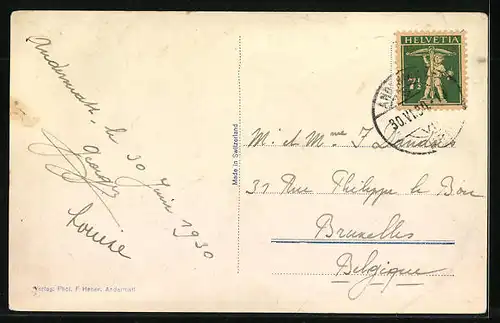 Andermatt, le 30 Juin 1930
Georges
Louise
Made in Switzerland
HELVETIA
7½
30.VI.30
M. et Mme J
31 Rue Philippe le Bon
Bruxelles
Belgique
Verlag Phot. F. Andermatt